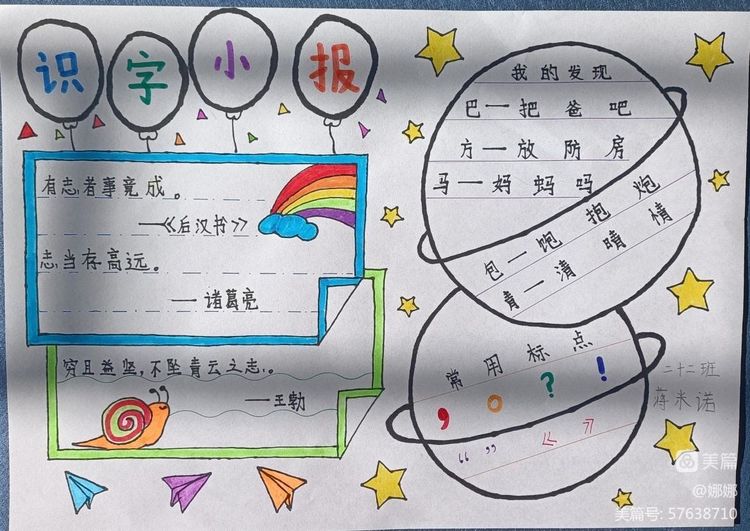 识字小报
有志者事竟成。
——《后汉书》
志当存高远。
——诸葛亮
穷且益坚,不坠青云之志。
——王勃
我的发现
巴—把 爸 吧
方—放 防 房
马—妈 蚂 吗
包—饱 抱 炮
青—清 晴 情
常用标点
, 。 ? !
“ ” 《 》
二十二班
蒋米诺
美篇
@娜娜
美篇号: 57638710